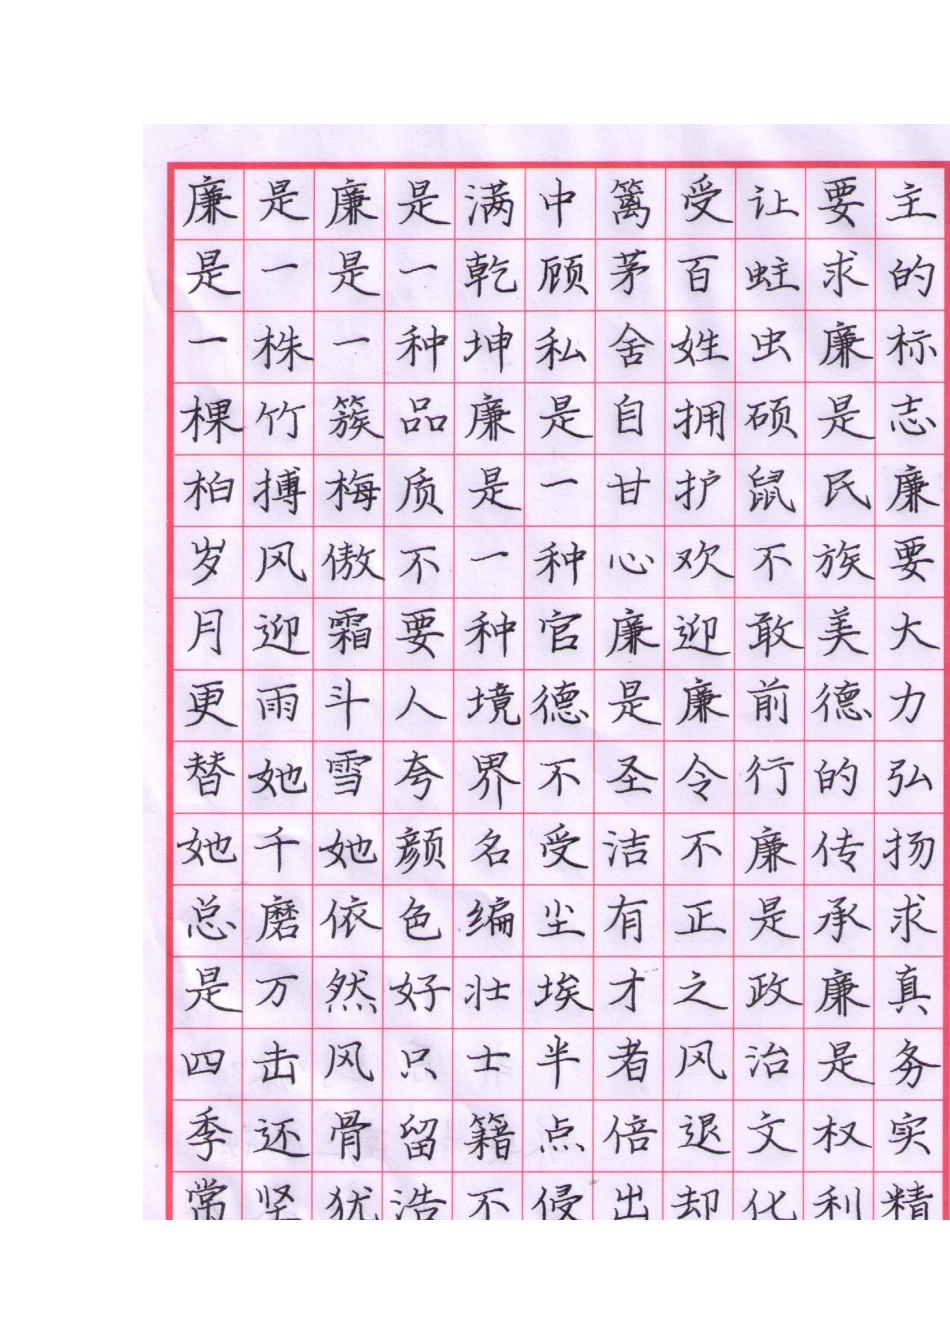 廉是一棵柏岁月更替她总是四季常
是一株竹搏风迎雨她千磨万击还坚
廉是一簇梅傲霜斗雪她依然风骨犹
是一种品质不要人夸颜色好只留浩
满乾坤廉是一种境界名编壮士籍不
中顾私是一种官德不受尘埃半点侵
篱茅舍自甘心廉是圣洁有才者倍出
受百姓拥护欢迎廉令不正之风退却
让蛀虫硕鼠不敢前行廉是政治文化
要求廉是民族美德的传承廉是权利
主的标志廉要大力弘扬求真务实精